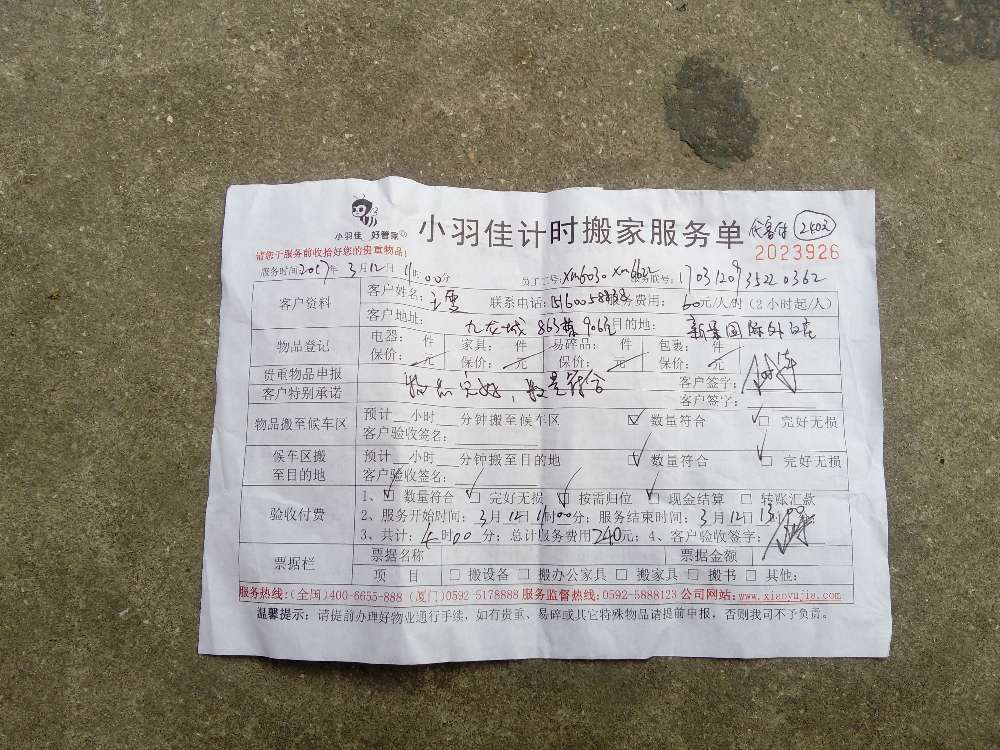 小羽佳 好管家
小羽佳计时搬家服务单
2402
请您于服务前收拾好您的贵重物品!
2023926
服务时间2017年3月12日11时00分 员工工号:xm6030 服务联号:
客户资料 客户姓名: 联系电话: 服务费用:60元/人/时(2小时起/人)
客户地址:九龙城863栋906 目的地:新景国际外
物品登记 电器: 件 家具: 件 易碎品: 件 包裹: 件
保价: 元 保价: 元 保价: 元 保价: 元
贵重物品申报 物品完好,数量符合 客户签字:
客户特别承诺 客户签字:
物品搬至候车区 预计__小时__分钟搬至候车区 ☑ 数量符合 ☑ 完好无损
客户验收签名:
候车区搬至目的地 预计__小时__分钟搬至目的地 ☑ 数量符合 ☑ 完好无损
客户验收签名:
验收付费 1、☑ 数量符合 ☑ 完好无损 ☑ 按需归位 ☑ 现金结算 □ 转账汇款
2、服务开始时间:3月12日11时00分;服务结束时间:3月12日13时00
3、共计: 时00分;总计服务费用240元;4、客户验收签字:
票据栏 票据名称 票据金额
项 目 □ 搬设备 □ 搬办公家具 □ 搬家具 □ 搬书 □ 其他:
服务热线:(全国)400-6655-888 (厦门)0592-5178888 服务监督热线:0592-5888123 公司网站:www.xiaoyujia.com
温馨提示:请提前办理好物业通行手续,如有贵重、易碎或其它特殊物品请提前申报,否则我司不予负责。